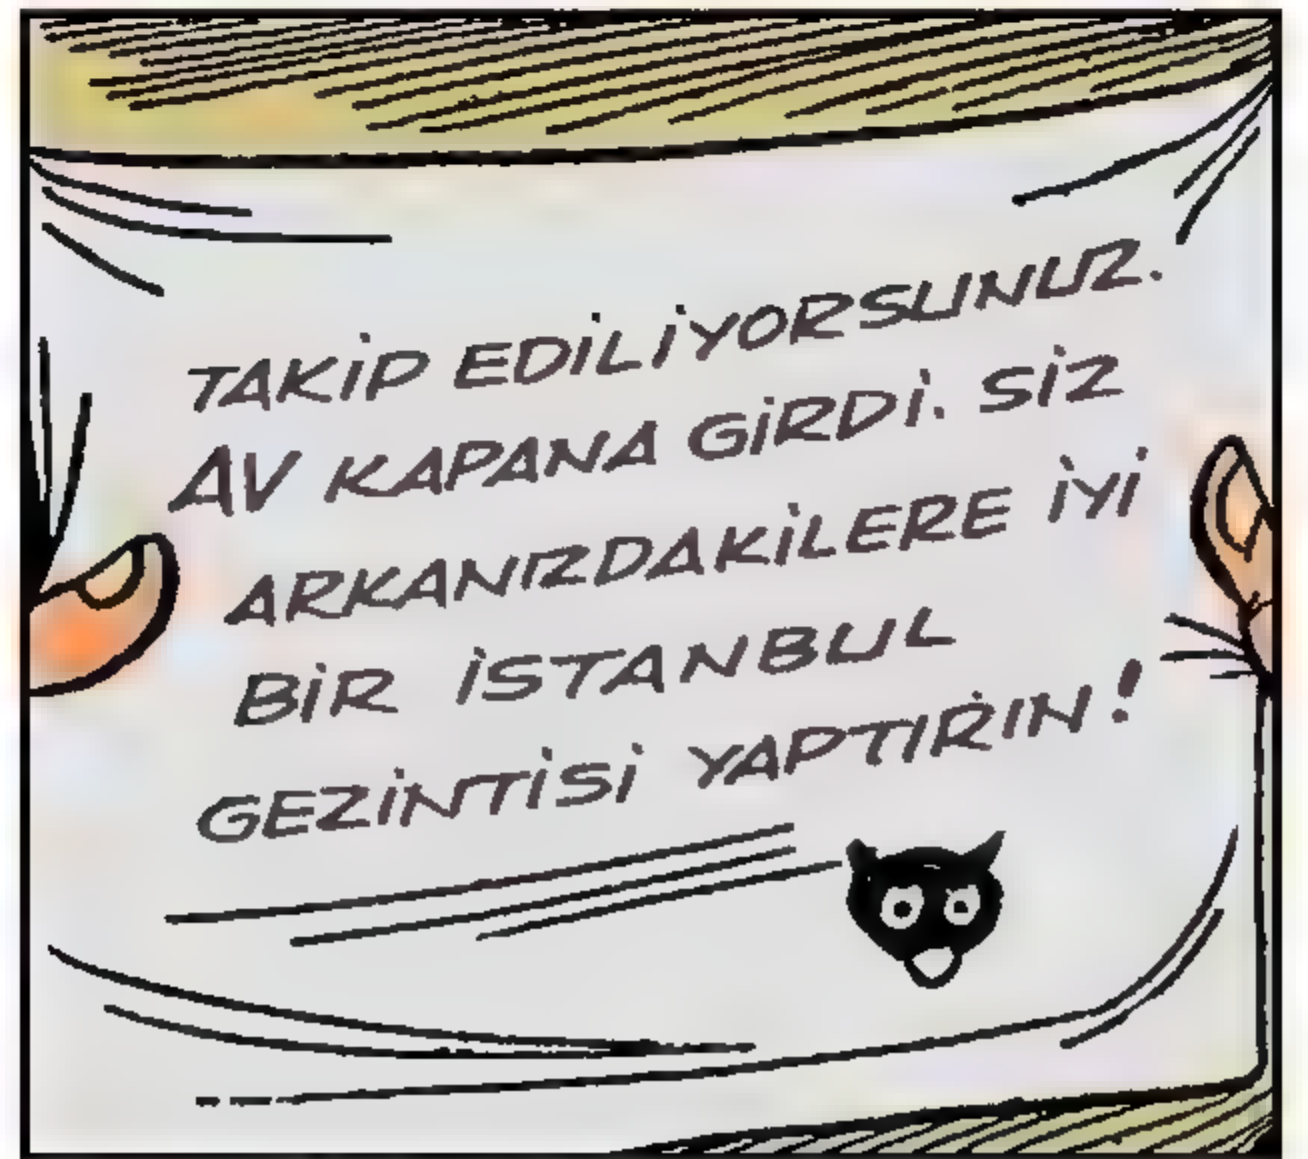 TAKİP EDİLİYORSUNUZ.
AV KAPANA GİRDİ. SİZ
ARKANIZDAKİLERE İYİ
BİR İSTANBUL
GEZİNTİSİ YAPTIRIN!